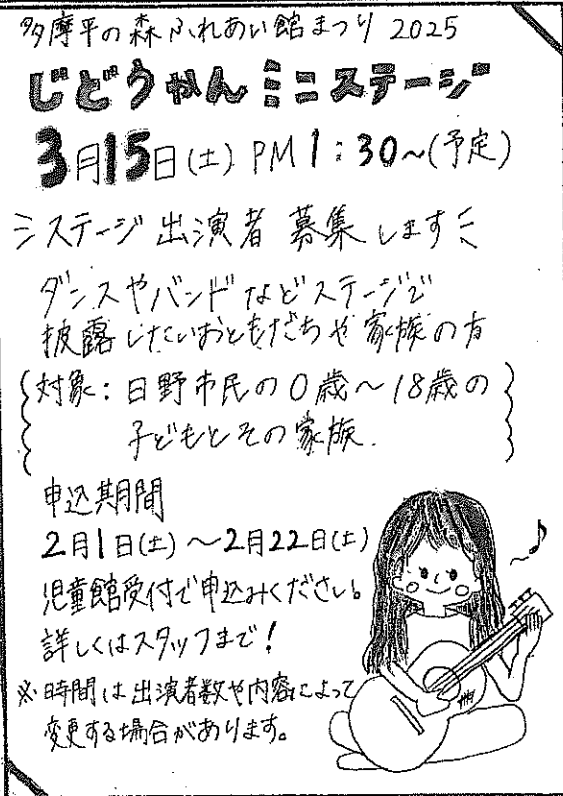 多摩平の森ふれあい館まつり 2025
じどうかんミニステージ
3月15日(土) PM 1:30~(予定)
ステージ 出演者 募集します
ダンスやバンドなどステージで
披露したいおともだちや家族の方
対象: 日野市民の0歳~18歳の
子どもとその家族.
申込期間
2月1日(土)~2月22日(土)
児童館受付で申込みください。
詳しくはスタッフまで!
※時間は出演者数や内容によって
変更する場合があります。